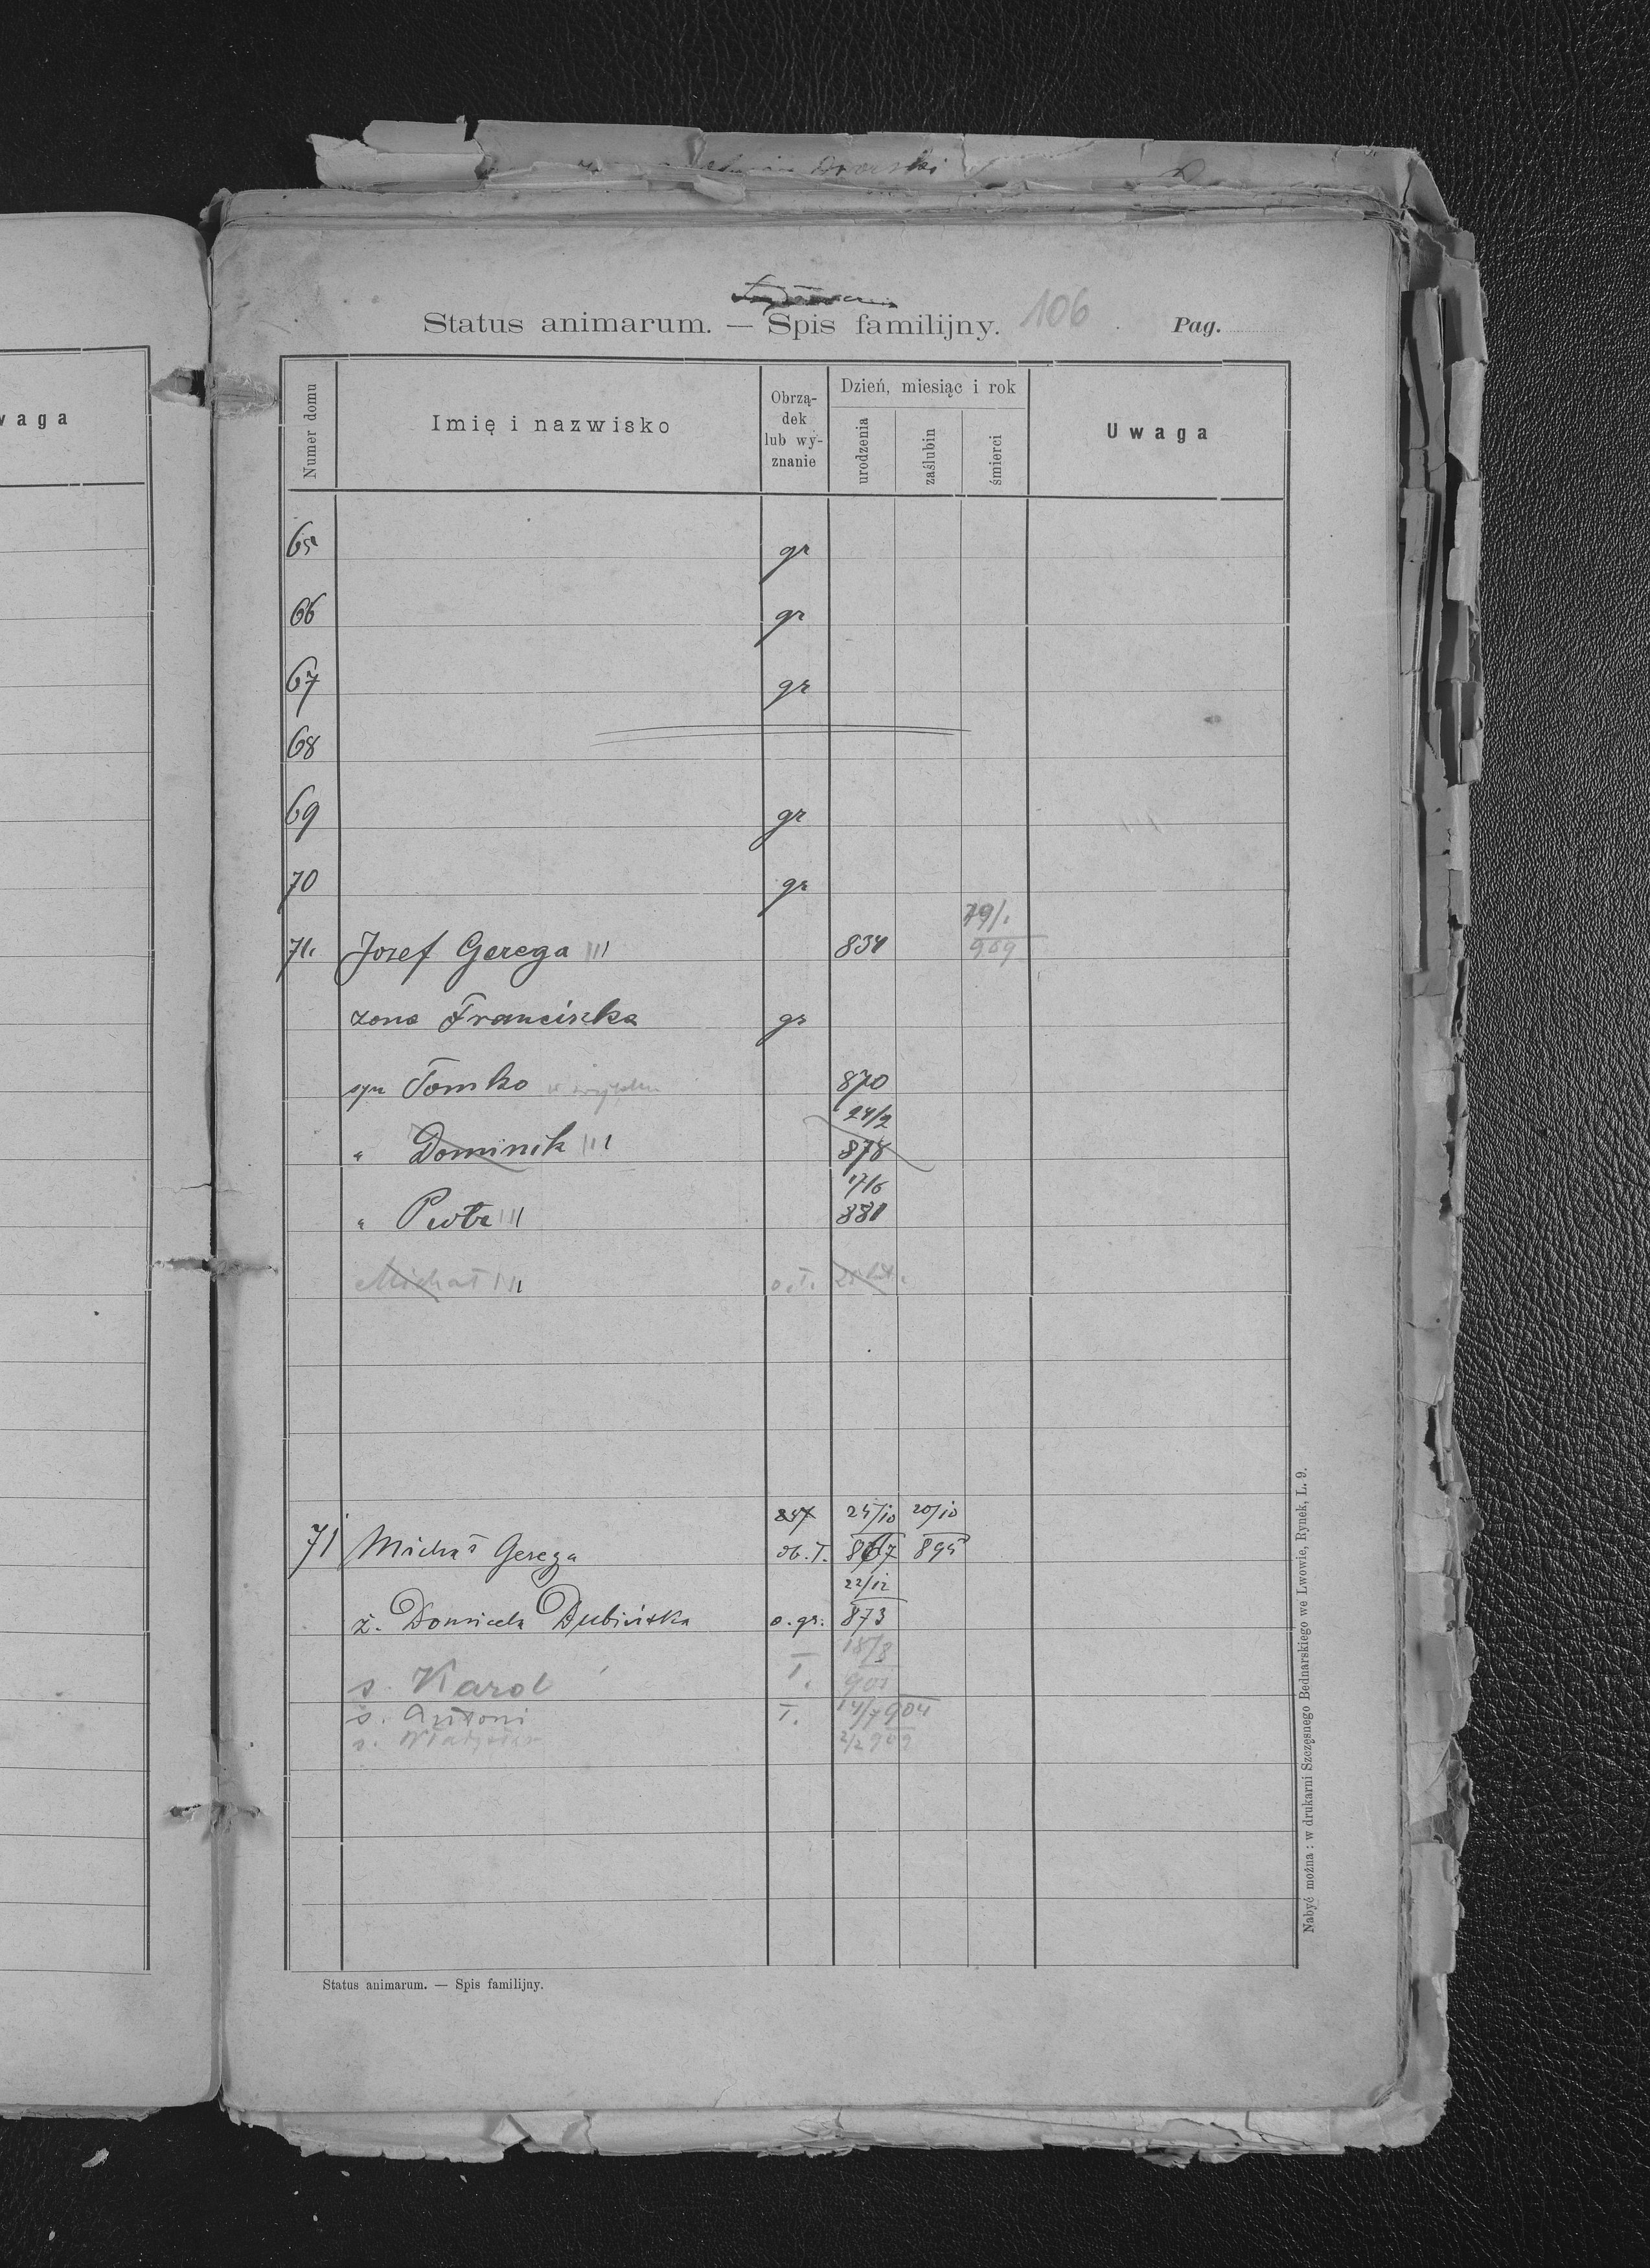 Dworski
Status animarum. — Spis familijny. 106 Pag.
waga
Numer domu
Imię i nazwisko
Obrzą-
dek
lub wy-
znanie
Dzień, miesiąc i rok
urodzenia
zaślubin
śmierci
Uwaga
65 gr
66 gr
67 gr
68
69 gr
70 gr
71. Jozef Gerega 834 909
zona Franciszka gr
syn Tomko 870
24/2
" Dominik 878
17/6
" Piotr 881
Michał o.ł.
247 24/10 20/10
71 Michał Gerega ob. ł. 867 895
22/12
ż. Domicela Dubińska o. gr. 873
18/8
s. Karol ł. 901
s. Antoni ł. 14/7 904
s. Władysław 2/2 909
Status animarum. — Spis familijny.
Nabyć można: w drukarni Szczęsnego Bednarskiego we Lwowie, Rynek, L. 9.